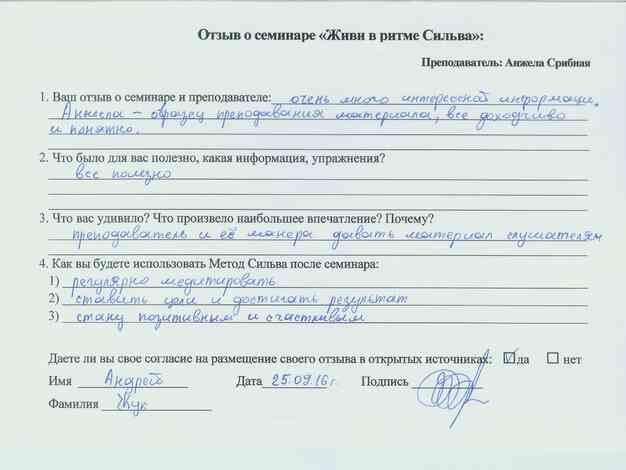 Отзыв о семинаре «Живи в ритме Сильва»:
Преподаватель: Анжела Срибная
1. Ваш отзыв о семинаре и преподавателе: очень много интересной информации.
Анжела – образец преподавания материала, все доходчиво
и понятно.
2. Что было для вас полезно, какая информация, упражнения?
все полезно
3. Что вас удивило? Что произвело наибольшее впечатление? Почему?
преподаватель и её манера давать материал слушателям
4. Как вы будете использовать Метод Сильва после семинара:
1) регулярно медитировать
2) ставить цели и достигать результат
3) стану позитивным и счастливым
Даете ли вы свое согласие на размещение своего отзыва в открытых источниках: ☑ да ☐ нет
Имя Андрей Дата 25.09.16г. Подпись
Фамилия Жук